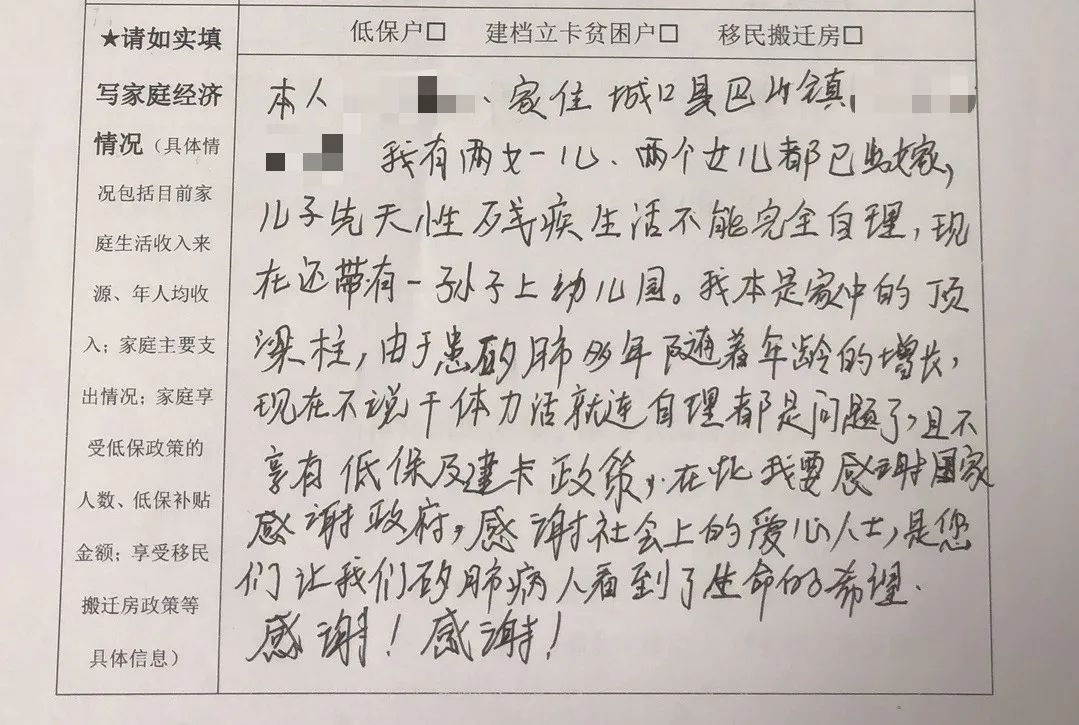 低保户□ 建档立卡贫困户□ 移民搬迁房□
★请如实填
写家庭经济
情况（具体情
况包括目前家
庭生活收入来
源、年人均收
入；家庭主要支
出情况；家庭享
受低保政策的
人数、低保补贴
金额；享受移民
搬迁房政策等
具体信息）
本人 、家住城口县巴山镇
我有两女一儿、两个女儿都已出嫁，
儿子先天性残疾生活不能完全自理，现
在还带有一孙子上幼儿园。我本是家中的顶
梁柱，由于患矽肺多年随着年龄的增长，
现在不说干体力活就连自理都是问题了，且不
享有低保及建卡政策，在此我要感谢国家
感谢政府，感谢社会上的爱心人士，是您
们让我们矽肺病人看到了生命的希望.
感谢！感谢！